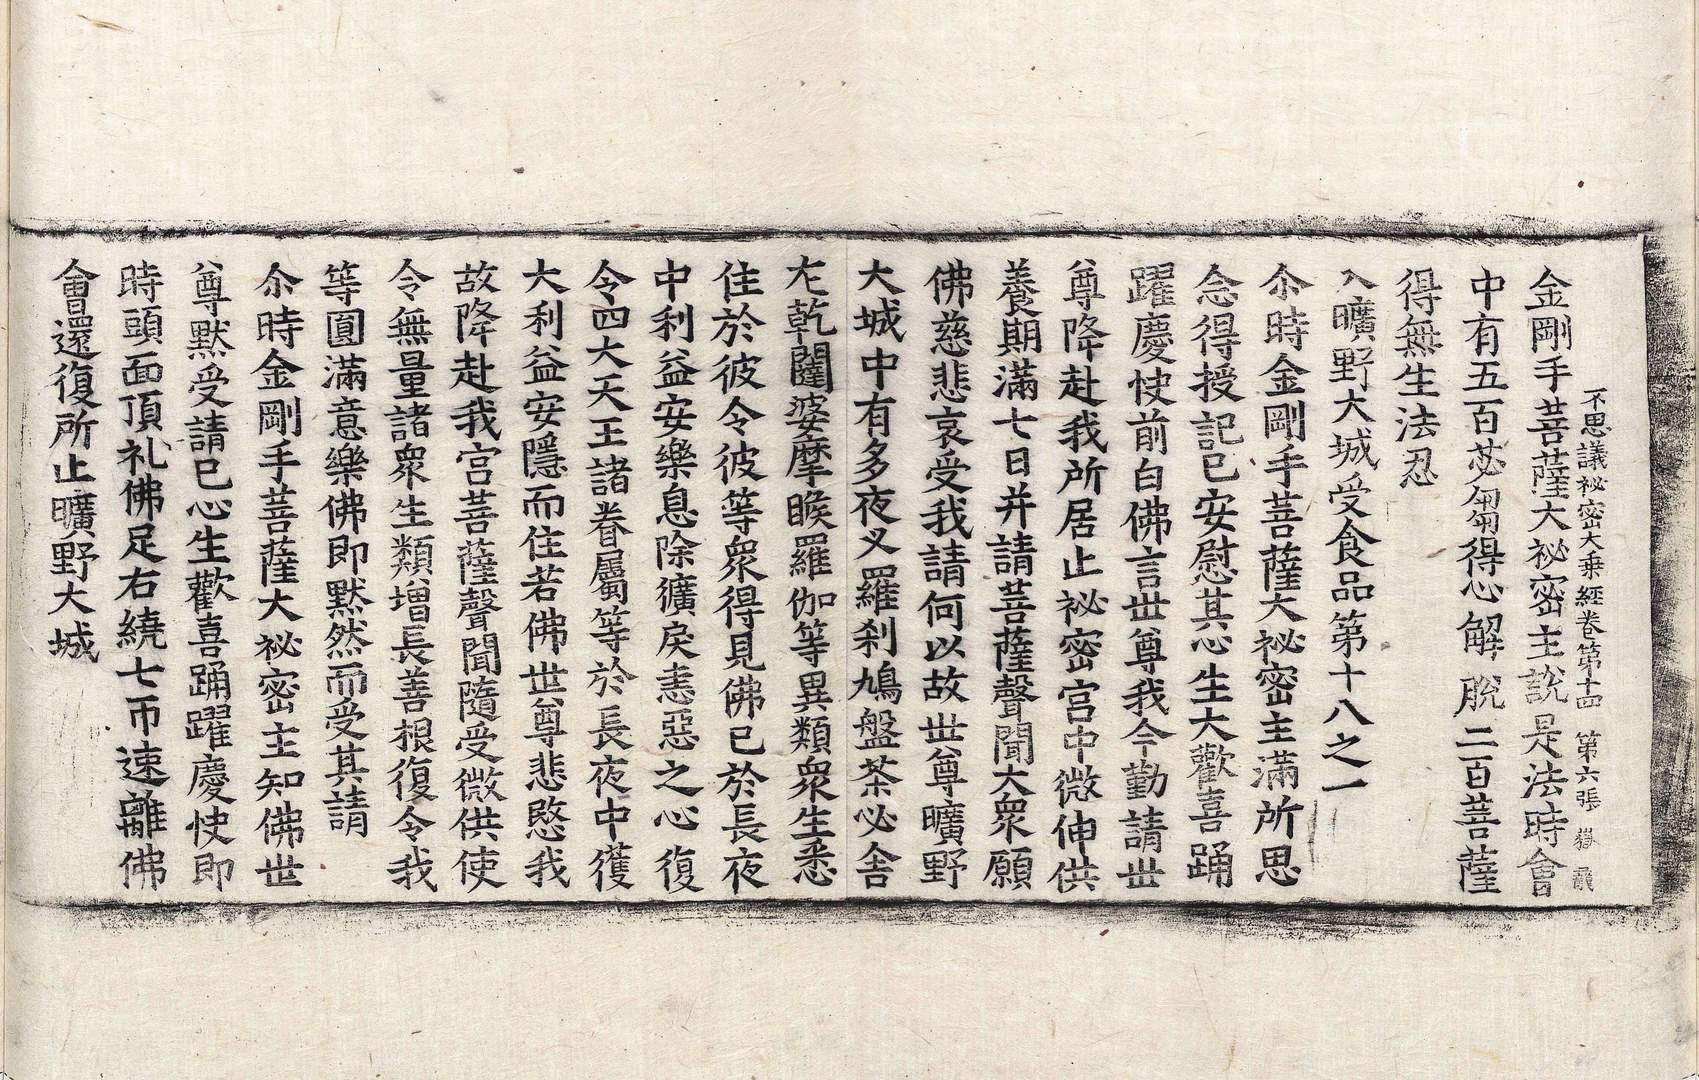 不思議祕密大乗經卷第十四　第六張　嶽
金剛手菩薩大祕密主說是法時會
中有五百苾芻得心解脫二百菩薩
得無生法忍
入曠野大城受食品第十八之一
尒時金剛手菩薩大祕密主滿所思
念得授記已安慰其心生大歡喜踊
躍慶快前白佛言世尊我今勤請世
尊降赴我所居止祕密宫中微伸供
養期滿七日并請菩薩聲聞大衆願
佛慈悲哀受我請何以故世尊曠野
大城中有多夜叉羅刹鳩盤茶必舍
左乾闥婆摩睺羅伽等異類衆生悉
住於彼令彼等衆得見佛已於長夜
中利益安樂息除獷戾恚惡之心復
令四大天王諸眷屬等於長夜中獲
大利益安隱而住若佛世尊悲愍我
故降赴我宫菩薩聲聞隨受微供使
令無量諸衆生類增長善根復令我
等圓滿意樂佛即默然而受其請
尒時金剛手菩薩大祕密主知佛世
尊默受請已心生歡喜踊躍慶快即
時頭面頂礼佛足右繞七帀速離佛
會還復所止曠野大城